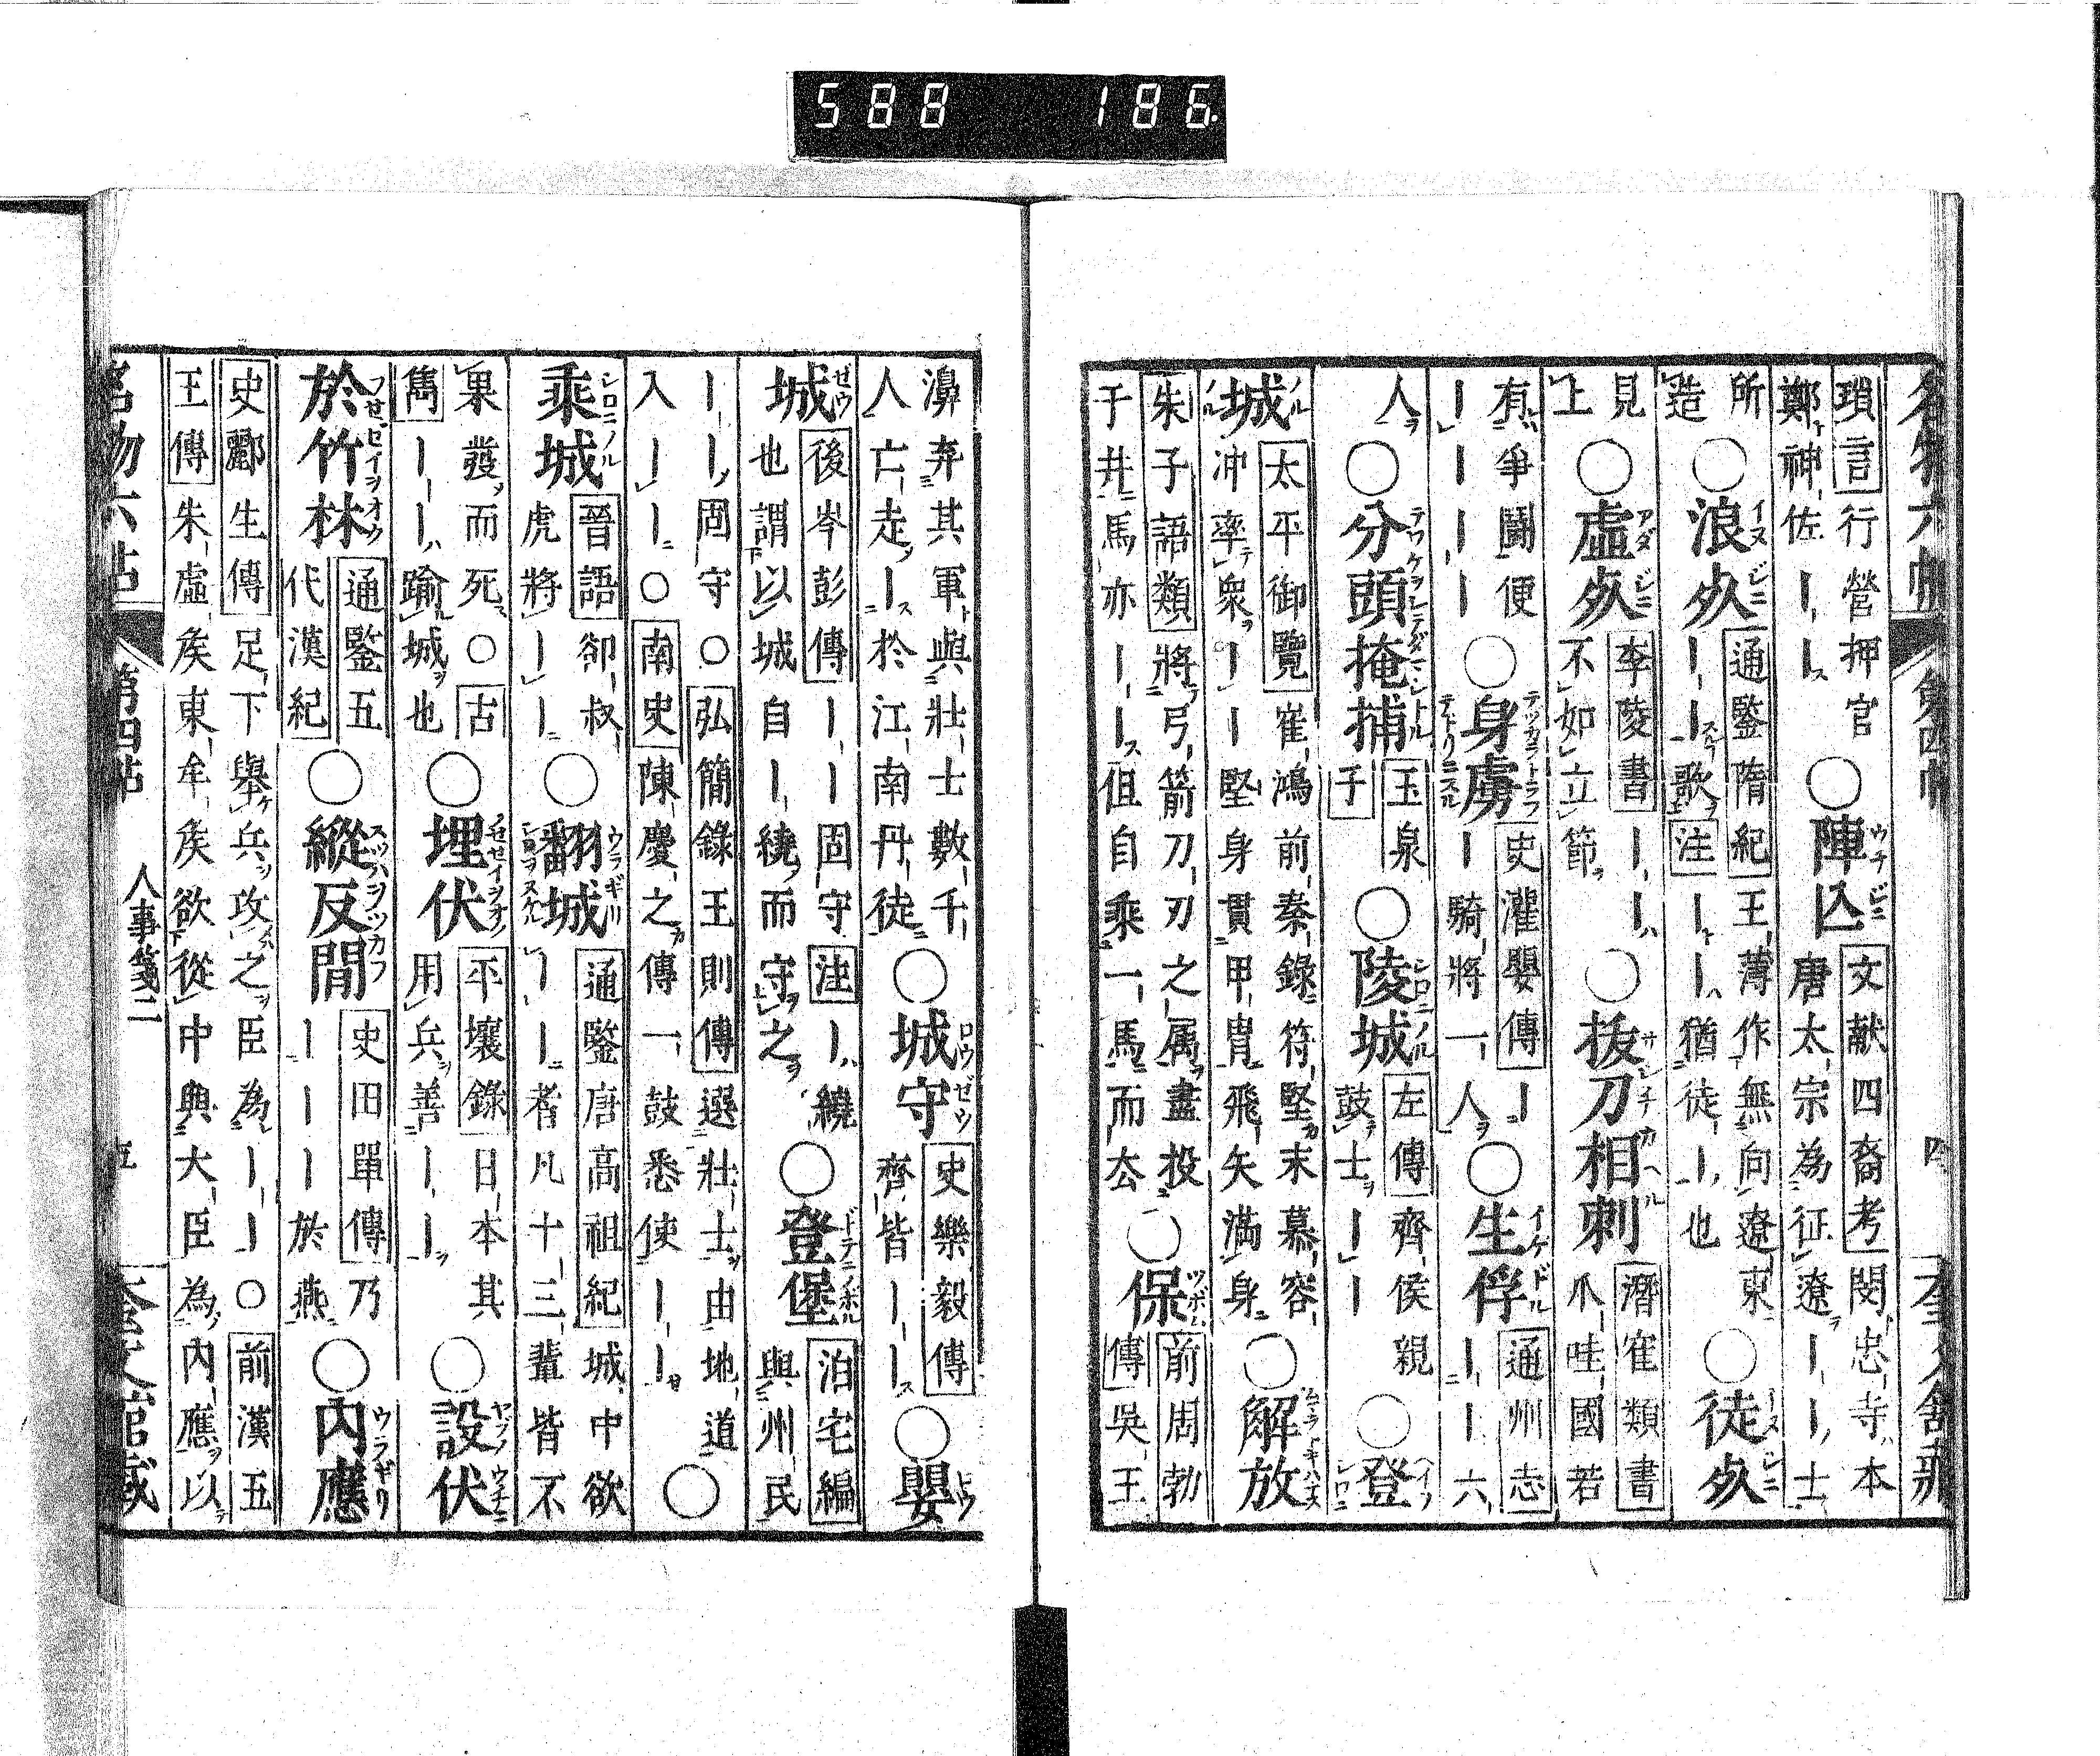 588 186
名物六帖 第四帖 四 奎文館藏
瑣言 行營押官 ○陣亾 文献四裔考 閔忠寺本
鄭神佐｜｜ 唐太宗為征遼｜｜士
所造 ○浪死 通鑒隋紀 王薄作無向遼東
｜｜歌 注 ｜｜猶徒｜也 ○徒死
見上 ○虛死 李陵書 ｜｜不如立節 ○拔刀相刺 潛寉類書 爪哇國若
有爭鬪便｜｜｜｜ ○身虜 史灌嬰傳 ｜｜騎將一人 ○生俘 通州志 ｜｜六
人 ○分頭掩捕 玉泉子 ○陵城 左傳 齊侯親鼓士｜｜ ○登
城 太平御覽 崔鴻前秦錄符堅末慕容
冲率衆｜｜堅身貫甲胄飛矢滿身 ○解放
朱子語類 將弓箭刀刃之属盡投
于井馬亦｜｜但自乘一馬而去 ○保 前周勃傳 吳王
濞弃其軍與壯士數千
人亡走｜於江南丹徒 ○城守 史樂毅傳 齊皆｜｜ ○嬰
城 後岑彭傳 ｜｜固守 注 ｜繞
也謂以城自｜繞而守之 ○登堡 泊宅編 與州民
｜｜固守 ○ 弘簡錄王則傳 選壯士由地道
入｜｜ ○ 南史 陳慶之傳一鼓悉使｜｜ ○
乘城 晉語 郤叔虎將｜｜ ○翻城 通鑒唐高祖紀 城中欲｜｜者凡十三輩皆不
果發而死 ○ 古雋 ｜｜踰城也 ○埋伏 平壤錄 日本其用兵善｜｜ ○設伏
於竹林 通鑒五代漢紀 ○縱反間 史田單傳 乃｜｜｜於燕 ○內應
史酈生傳 足下舉兵攻之臣為｜｜ ○ 前漢五
王傳 朱虛矦東牟矦欲從中與大臣為內應以
名物六帖 第四帖 人事箋二 五 奎文館藏